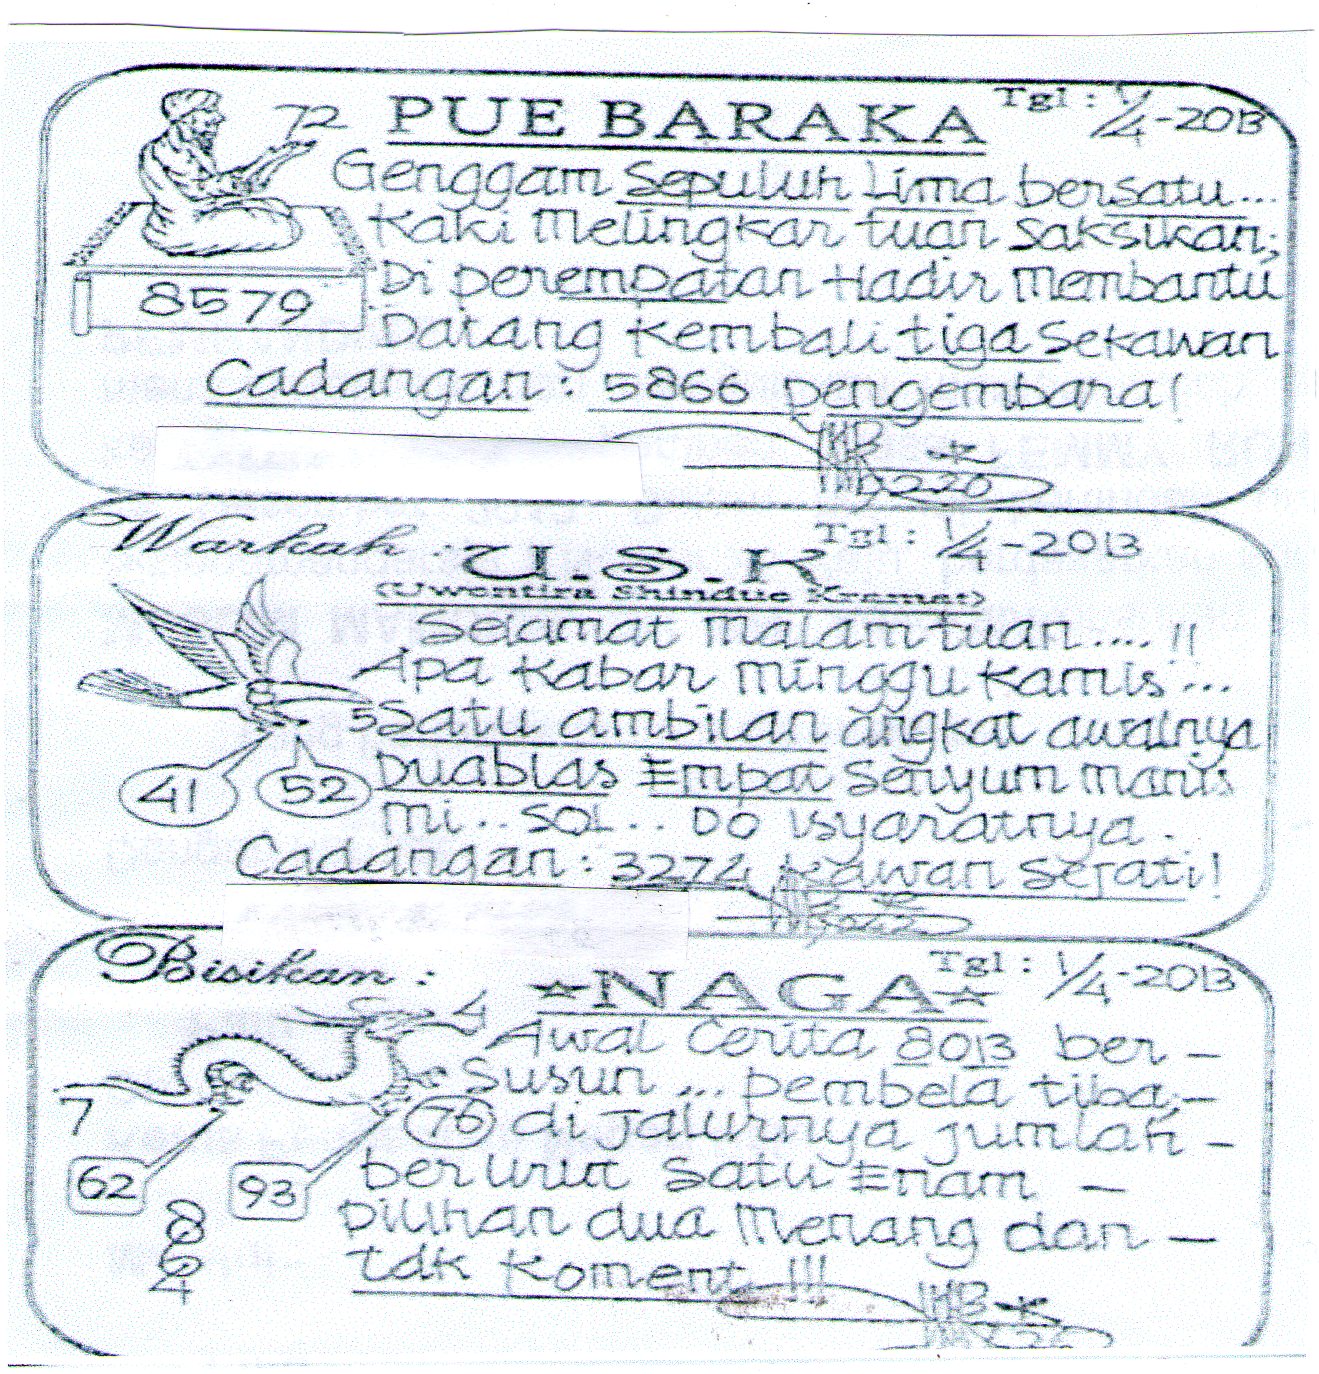 72 PUE BARAKA Tgl : 1/4-2013
Genggam Sepuluh Lima bersatu...
Kaki Melingkar tuan Saksikan;
Di perempatan Hadir Membantu
8579
Datang Kembali tiga Sekawan
Cadangan : 5866 pengembara!
Warkah : U.S.K Tgl : 1/4-2013
(Uwentira Shindue Kramat)
Selamat Malam tuan....!!
Apa Kabar Minggu Kamis...
5 Satu ambilan angkat awalnya
41 52 Duablas Empat Senyum Manis
Mi.. SOL.. DO isyaratnya.
Cadangan : 3274 Kawan Sejati!
Bisikan : NAGA Tgl : 1/4-2013
4 Awal Cerita 8013 ber-
Susun ... pembela tiba,-
7 76 di Jalurnya jumlah-
62 93 berurut Satu Enam -
Pilihan dua Menang dan -
8
0
6
4
tdk Koment !!!